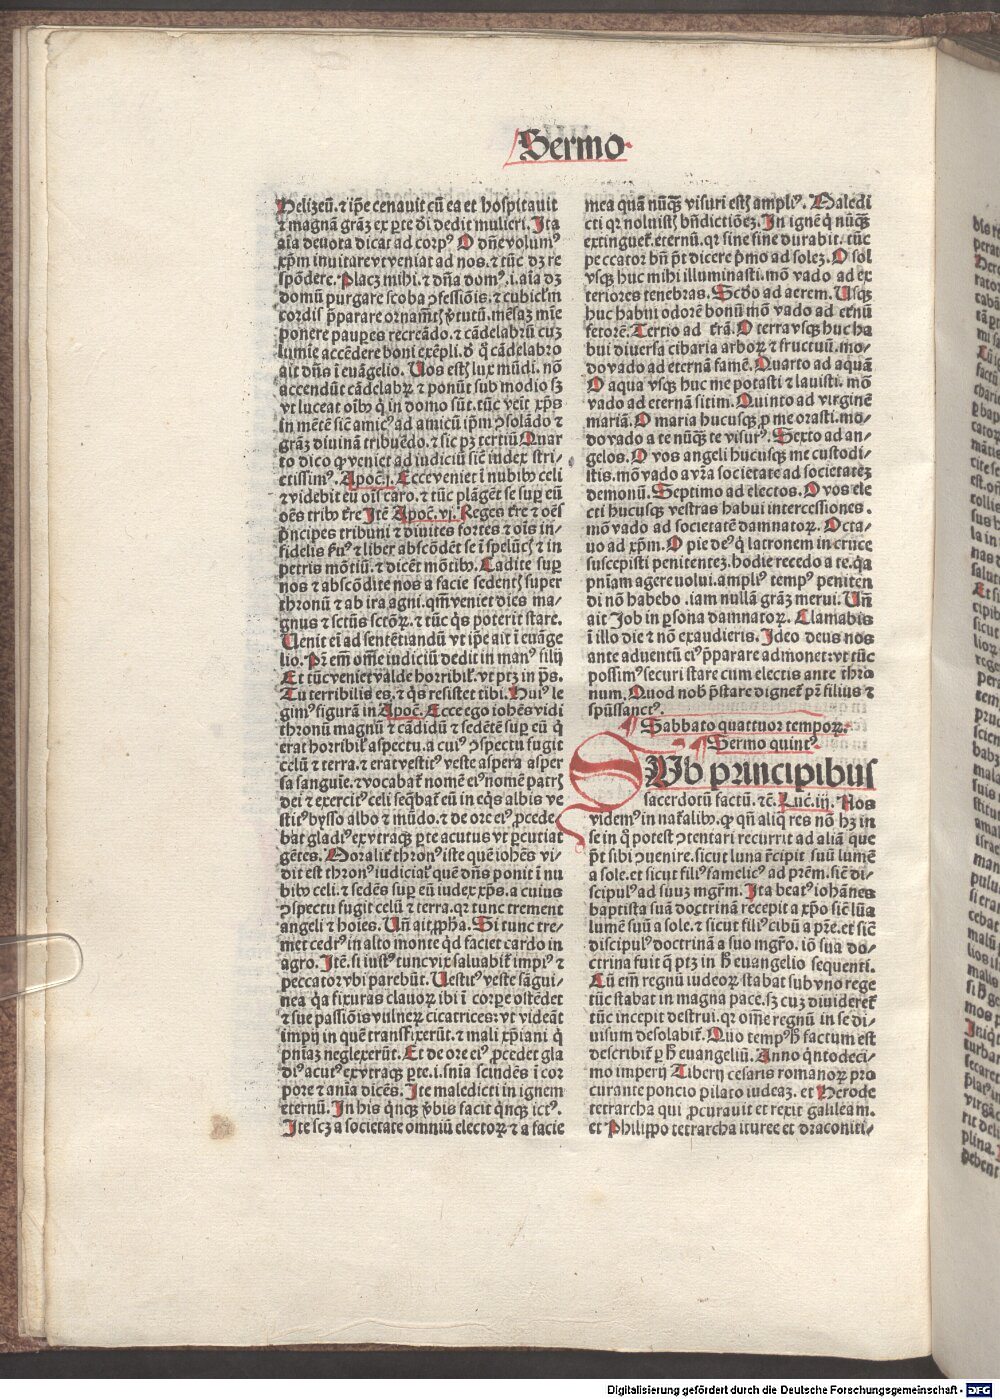 Sermo
Helizeū. ⁊ ip̄e cenauit cū ea et hospitauit
⁊ magnā grāʒ ex ꝑte dī dedit mulieri. Ita
aīa deuota dicat ad corpꝰ O dn̄e volumꝰ
xp̄m inuitare vt veniat ad nos. ⁊ tūc dʒ re
spōdere. Placʒ mihi. ⁊ dn̄a domꝰ .i. aīa dʒ
domū purgare scoba ↄfessiōis. ⁊ cubicl'm
cordis p̄parare ornamētꝭ v̓tutū. mēsaʒ mīe
ponere pauꝑes recreādo. ⁊ cādelabrū cuʒ
lumīe accēdere boni exēpli. d̓ q̊ cādelabro
ait dn̄s ī euāgelio. Uos estꝭ lux mūdi. nō
accendūt cādelabꝝ ⁊ ponūt sub modio sʒ
vt luceat oībꝰ q̇ in domo sūt. tūc veīt xp̄s
in mētē sic̄ amicꝰ ad amicū ip̄m ↄsolādo ⁊
grāʒ diuinā tribuēdo. ⁊ sic pʒ tertiū Quar
to dico ꝙ veniet ad iudiciū sic̄ iudex stri⸗
ctissimꝰ. Apoc̄. j. Ecce veniet ī nubibꝰ celi
⁊ videbit eū oīs caro. ⁊ tūc plāgēt se suꝑ eū
oēs tribꝰ t̄re Itē Apoc̄. vj. Reges t̄re ⁊ oēs
p̓ncipes tribuni ⁊ diuites fortes ⁊ oīs in⸗
fidelis s̓uꝰ ⁊ liber abscōdēt se ī spelūcꝭ ⁊ in
petris mōtiū. ⁊ dicēt mōtibꝰ. Cadite suꝑ
nos ⁊ abscōdite nos a facie sedentꝭ super
thronū ⁊ ab ira agni. qm̄ veniet dies ma⸗
gnus ⁊ sctūs sctōꝝ. ⁊ tūc q̇s poterit stare.
Uenit eī ad sentētiandū vt ip̄e ait ī euāge
lio. Pr̄ em̄ om̄e iudiciū dedit in manꝰ filij
Et tūc veniet valde horribil'. vt ptʒ in p̄s.
Tu terribilis es. ⁊ q̇s resistet tibi. Huiꝰ le
gimꝰ figurā in Apoc̄. Ecce ego iohēs vidi
thronū magnū ⁊ cādidū ⁊ sedētē suꝑ eū q̇
erat horribil' aspectu. a cuiꝰ ↄspectu fugit
celū ⁊ terra. ⁊ erat vestitꝰ veste aspera asper
sa sanguīe. ⁊ vocabat̓ nomē eiꝰ nomē patrꝭ
dei ⁊ exercitꝰ celi seq̄bat̓ eū in eq̇s albis ve
stitꝰ bysso albo ⁊ mūdo. ⁊ de ore eiꝰ ꝓcede
bat gladiꝰ ex vtraqꝫ ꝑte acutus vt ꝑcutiat
gētes. Moralit̓ thronꝰ iste quē iohēs vi⸗
dit est thronꝰ iudicial' quē dn̄s ponit ī nu
bibꝰ celi. ⁊ sedēs suꝑ eū iudex xp̄s. a cuius
ↄspectu fugit celū ⁊ terra. qꝛ tunc trement
angeli ⁊ hoīes. Un̄ ait ꝓpha. Si tunc tre⸗
met cedrꝰ in alto monte qd̓ faciet cardo in
agro. Itē. si iustꝰ tunc vix saluabit̓ impiꝰ ⁊
peccator vbi parebūt. Uestitꝰ veste sāgui⸗
nea q̓a fixuras clauoꝝ ibi ī corꝑe ostēdet
⁊ sue passiōis vulneꝝ cicatrices: vt videāt
impij in quē transfixerūt. ⁊ mali xp̄iani q̇
pn̄iaʒ neglexerūt. Et de ore eiꝰ ꝓcedet gla
diꝰ acutꝰ ex vtraqꝫ ꝑte. i. sn̄ia scindēs ī cor
pore ⁊ anīa dicēs. Ite maledicti in ignem
eternū. In his q̇nqꝫ v̓bis facit q̇nqꝫ ictꝰ.
Ite scʒ a societate omniū electoꝝ ⁊ a facie
mea quā nūqꝫ̄ visuri estꝭ ampliꝰ. Maledi
cti qꝛ noluistꝭ bn̄dictiōeʒ. In ignē q̇ nūqꝫ̄
extinguet̓. eternū. qꝛ sine fine durabit. tūc
peccator bn̄ pt̄ dicere p̓mo ad soleʒ. O sol
vsqꝫ huc mihi illuminasti. mō vado ad ex
teriores tenebras. Scd̓o ad aerem. Usqꝫ
huc habui odorē bonū mō vado ad et̓nū
fetorē. Tertio ad t̓rā. O terra vsqꝫ huc ha
bui diuersa cibaria arboꝝ ⁊ fructuū. mo⸗
do vado ad eternā famē. Quarto ad aquā
O aqua vsqꝫ huc me potasti ⁊ lauisti. mō
vado ad eternā sitim. Quinto ad virginē
mariā. O maria hucusqꝫ ꝓ me orasti. mo⸗
do vado a te nūqꝫ̄ te visurꝰ. Sexto ad an⸗
gelos. O vos angeli hucusqꝫ me custodi⸗
istis. mō vado a vr̄a societate ad societateʒ
demonū. Septimo ad electos. O vos ele
cti hucusqꝫ vestras habui intercessiones.
mō vado ad societatē damnatoꝝ. Octa⸗
uo ad xp̄m. O pie deꝰ q̇ latronem in cruce
suscepisti penitenteʒ. hodie recedo a te. q̓a
pn̄iam agere uolui. ampliꝰ tempꝰ peniten
di nō habebo. iam nullā grāʒ merui. Un̄
ait Job in ꝑsona damnatoꝝ. Clamabis
ī illo die ⁊ nō exaudieris. Ideo deus nos
ante aduentū eiꝰ p̄parare admonet: vt tūc
possimꝰ securi stare cum electis ante thro
num. Quod nob̓ p̄stare dignet̓ pr̄ filius ⁊
spūssanctꝰ.
¶ Sabbato quattuor tempoꝝ.
¶ Sermo quintꝰ.
SUb principibus
sacerdotū factū. ⁊c̄. Luc̄. iij. Nos
videmꝰ in nat̓alibꝰ. ꝙ qn̄ aliq̓ res nō hʒ in
se in q̊ potest ↄtentari recurrit ad aliā que
pt̄ sibi ↄuenire. sicut luna r̄cipit suū lumē
a sole. et sicut filiꝰ famelicꝰ ad pr̄em. sic̄ di⸗
scipulꝰ ad suuʒ mgr̄m. Ita beatꝰ iohānes
baptista suā doctrinā recepit a xp̄o sic̄ lūa
lumē suū a sole. ⁊ sicut filiꝰ cibū a pr̄e. et sic̄
discipulꝰ doctrinā a suo mgr̄o. iō sua do⸗
ctrina fuit q̄ ptʒ in h̓ euangelio sequenti.
Cū em̄ regnū iudeoꝝ stabat sub vno rege
tūc stabat in magna pace. sʒ cuʒ diuideret̓
tūc incepit destrui. qꝛ om̄e regnū in se di⸗
uisum desolabit̓. Quo tempꝰ h̓ factum est
describit̓ ꝑ h̓ euangeliū. Anno q̇ntodeci⸗
mo imperij Tiberij cesaris romanoꝝ pro
curante poncio pilato iudeaʒ. et Herode
tetrarcha qui ꝓcurauit et rexit galileam.
et Philippo tetrarcha ituree et draconiti⸗
Digitalisierung gefördert durch die Deutsche Forschungsgemeinschaft - DFG